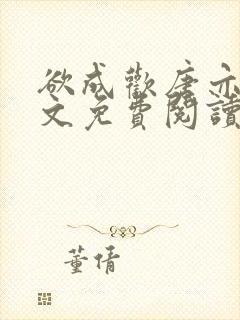 欲成歡唐亦
文免費閱讀
董倩